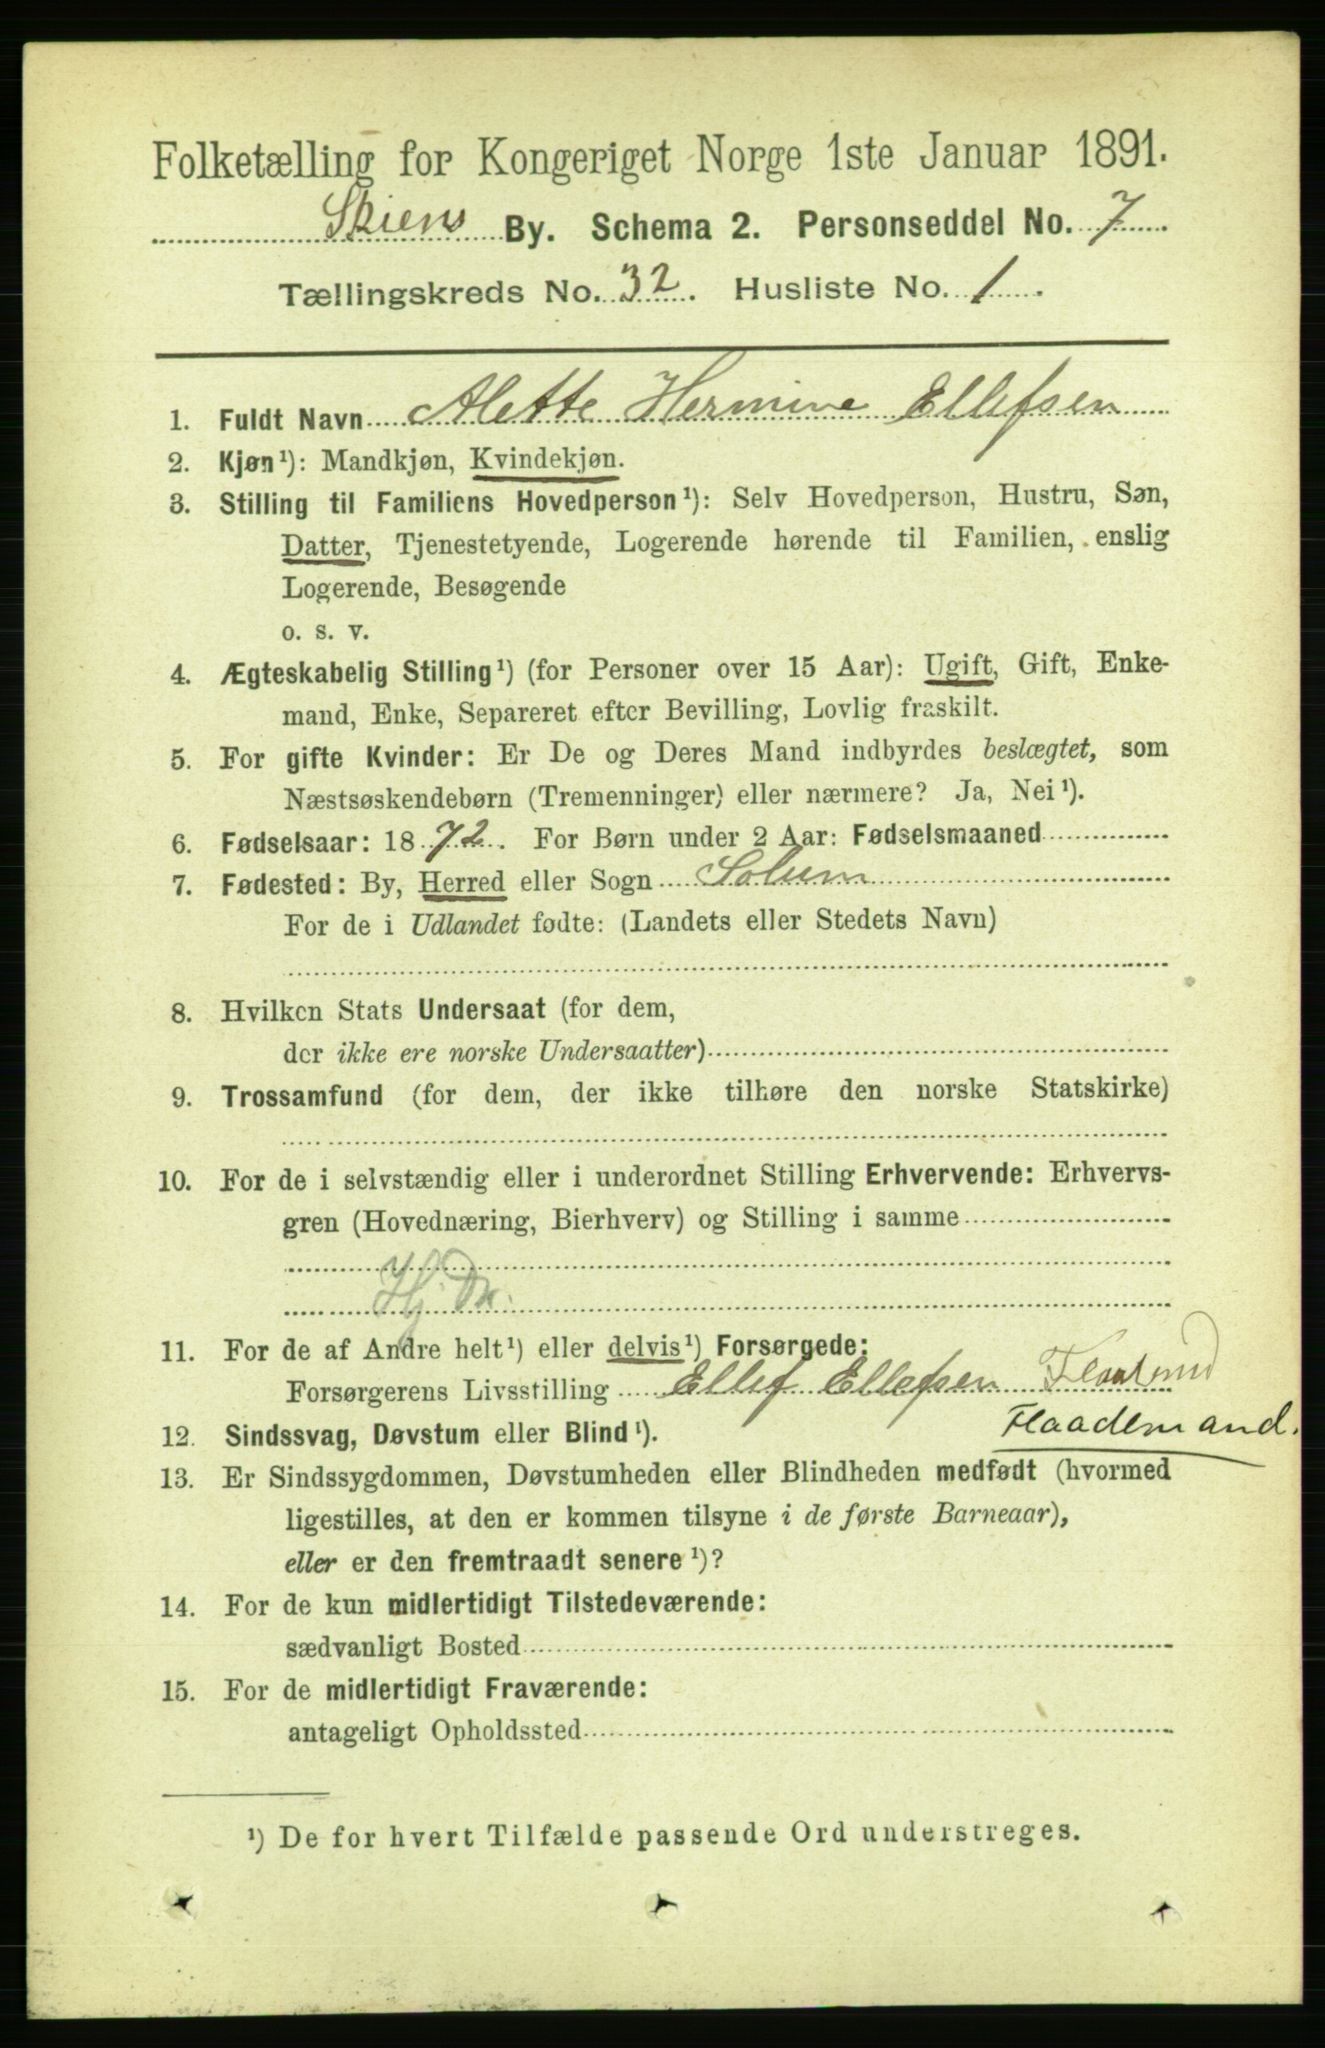 Folketælling for Kongeriget Norge 1ste Januar 1891.
Skiens By. Schema 2. Personseddel No. 7
Tællingskreds No. 32. Husliste No. 1.
1. Fuldt Navn Alette Hermine Ellefsen
2. Kjøn¹): Mandkjøn, Kvindekjøn.
3. Stilling til Familiens Hovedperson¹): Selv Hovedperson, Hustru, Søn,
Datter, Tjenestetyende, Logerende hørende til Familien, enslig
Logerende, Besøgende
o. s. v.
4. Ægteskabelig Stilling¹) (for Personer over 15 Aar): Ugift, Gift, Enke-
mand, Enke, Separeret efter Bevilling, Lovlig fraskilt.
5. For gifte Kvinder: Er De og Deres Mand indbyrdes beslægtet, som
Næstsøskendebørn (Tremenninger) eller nærmere? Ja, Nei¹).
6. Fødselsaar: 1872. For Børn under 2 Aar: Fødselsmaaned
7. Fødested: By, Herred eller Sogn Solum
For de i Udlandet fødte: (Landets eller Stedets Navn)
8. Hvilken Stats Undersaat (for dem,
der ikke ere norske Undersaatter)
9. Trossamfund (for dem, der ikke tilhøre den norske Statskirke)
10. For de i selvstændig eller i underordnet Stilling Erhvervende: Erhvervs-
gren (Hovednæring, Bierhverv) og Stilling i samme
Hj.
11. For de af Andre helt¹) eller delvis¹) Forsørgede:
Forsørgerens Livsstilling Ellef Ellefsen
Flaademand.
12. Sindssvag, Døvstum eller Blind¹).
13. Er Sindssygdommen, Døvstumheden eller Blindheden medfødt (hvormed
ligestilles, at den er kommen tilsyne i de første Barneaar),
eller er den fremtraadt senere¹)?
14. For de kun midlertidigt Tilstedeværende:
sædvanligt Bosted
15. For de midlertidigt Fraværende:
antageligt Opholdssted
¹) De for hvert Tilfælde passende Ord understreges.